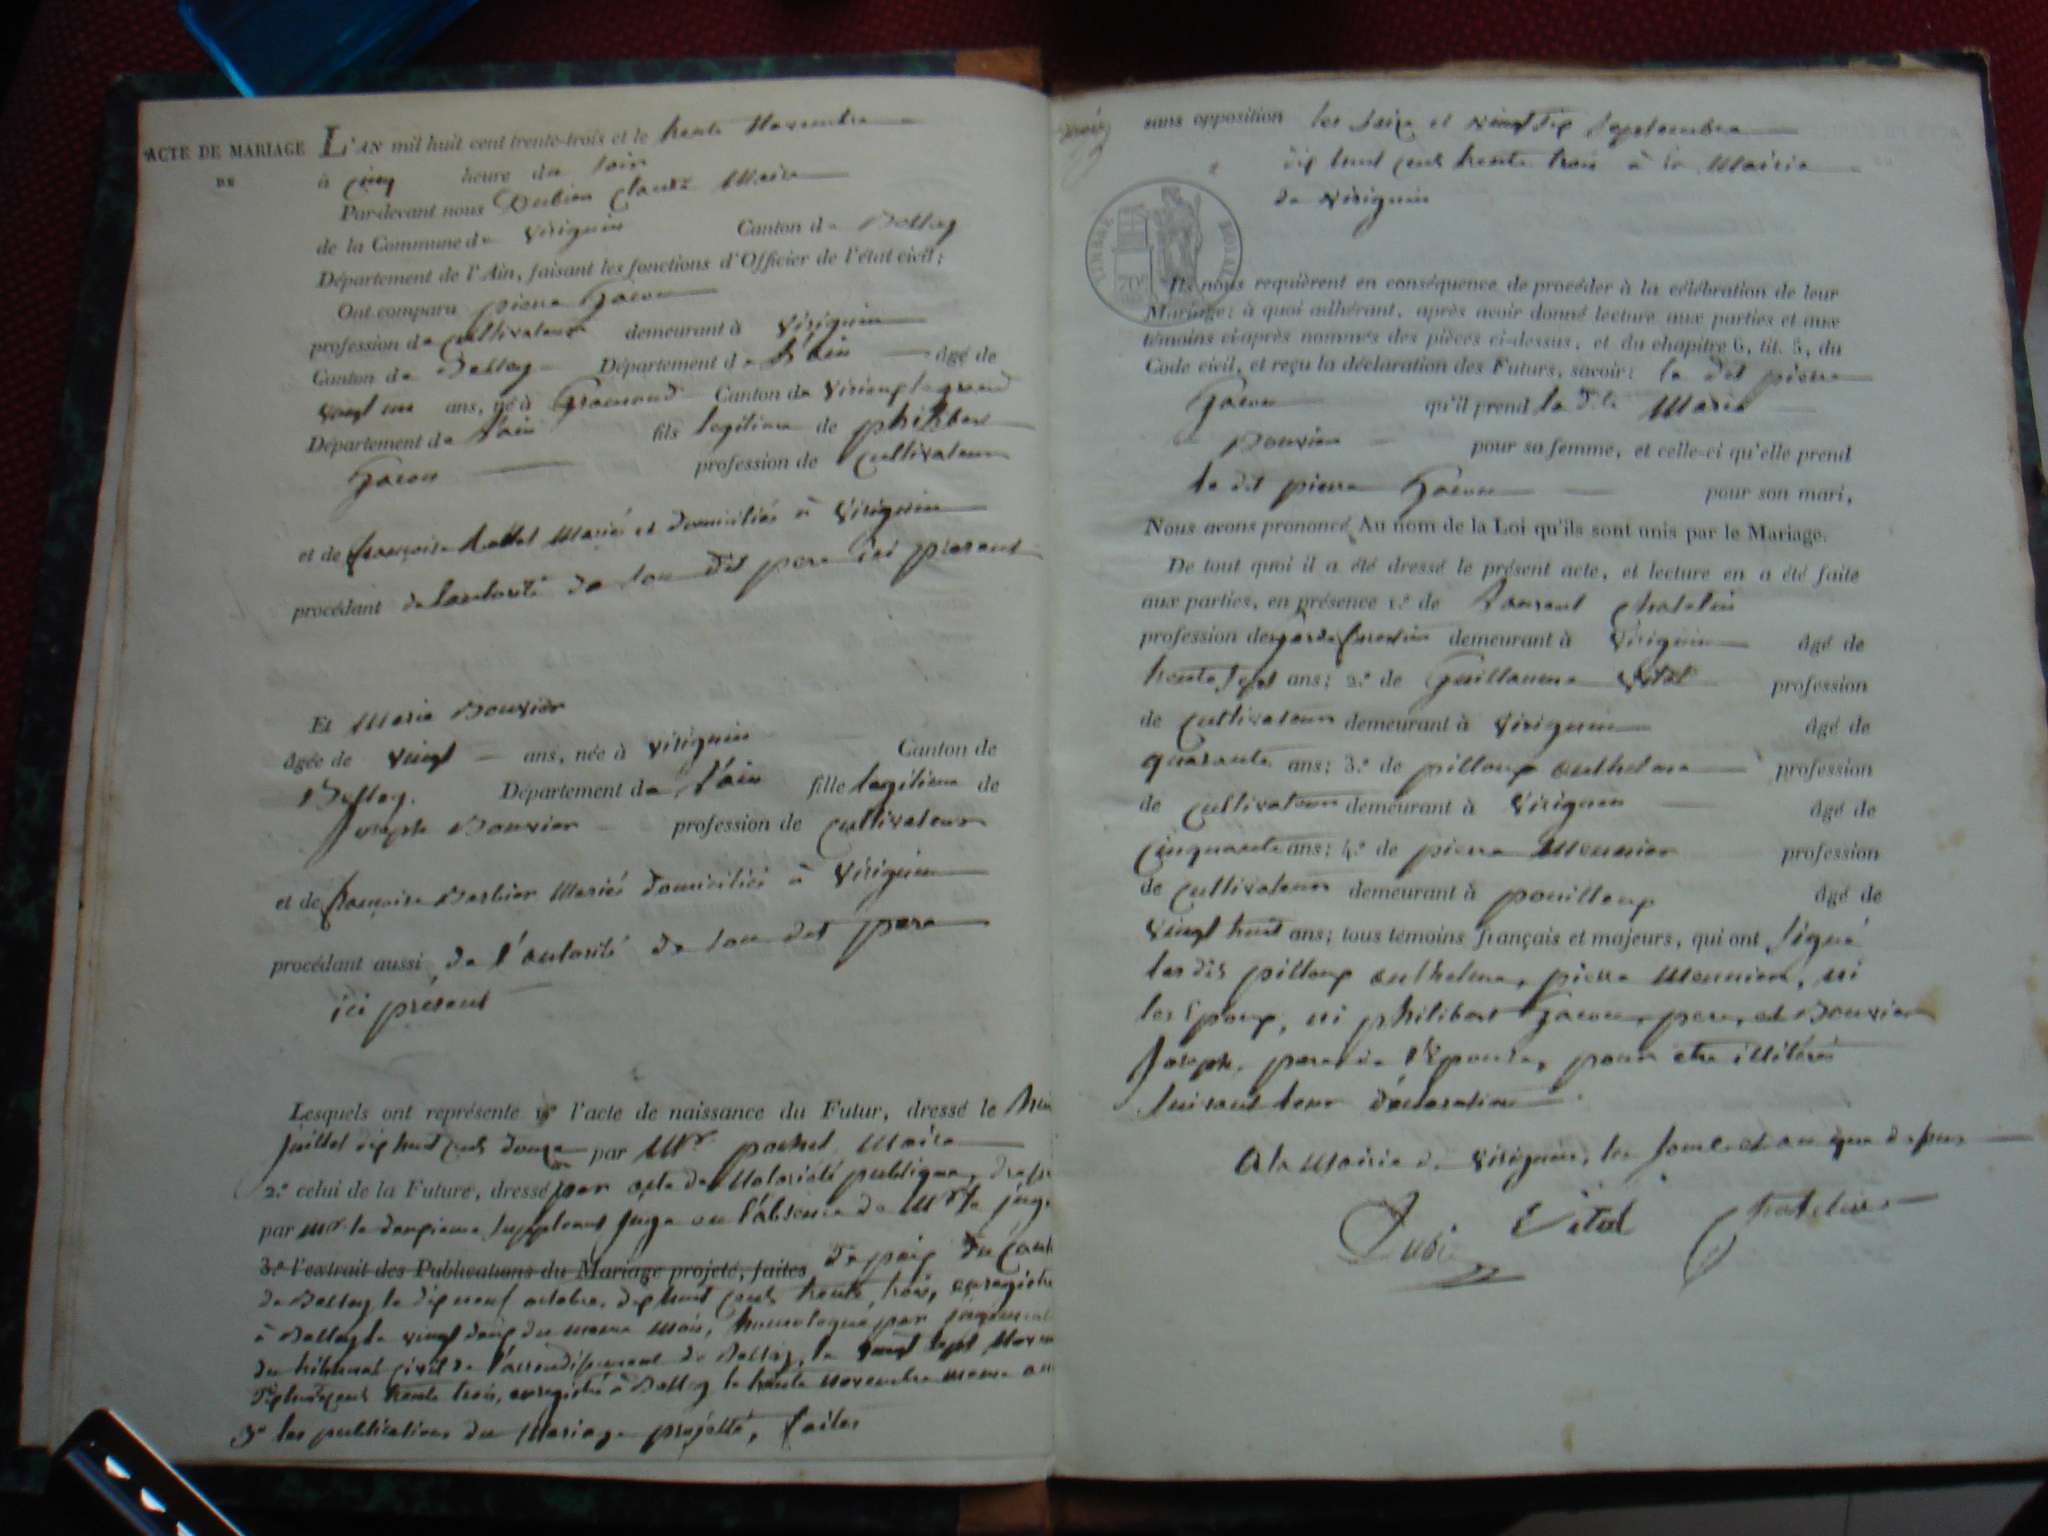 ACTE DE MARIAGE
DE
L'AN mil huit cent trente-trois et le trente Novembre
à cinq heure du soir
Par-devant nous Dubien Claude Maire
de la Commune de Virignin Canton de Belley
Département de l'Ain, faisant les fonctions d'Officier de l'état civil;
Ont comparu pierre Gacon
profession de cultivateur demeurant à Virignin
Canton de Belley Département de l'ain âgé de
vingt un ans, né à Canton de virieu le grand
Département de l'ain fils légitime de philibert
Gacon profession de cultivateur
et de françoise Mariés et domiciliés à Virignin
procédant de l'autorité de son dit pere ici présent
Et Marie Bouvier
âgée de vingt ans, née à virignin Canton de
Belley. Département de l'ain fille légitime de
Joseph Bouvier profession de cultivateur
et de françoise Barbier Mariés domiciliés à Virignin
procédant aussi de l'autorité de son dit pere
ici présent
Lesquels ont représenté 1º l'acte de naissance du Futur, dressé le
juillet dix huit cent douze par Mr. Maire
2.º celui de la Future, dressé par acte de Notoriété publique,
par Mr le deuxieme suppleant juge en l'absence de Mr le juge
3.º l'extrait des Publications du Mariage projeté, faites de paix du
de Belley le dix neuf octobre, dix huit cent trente trois,
à Belley le vingt deux du meme mois, homologué par
du tribunal civil de l'arrondissement de Belley, le vingt sept
dix huit cent trente trois, enregistré à Belley le trente novembre meme
3º les publications du Mariage projetté, faites
sans opposition les seize et Septembre
dix huit cent trente trois à la Mairie
de virignin
TIMBRE ROYAL
70c
Ils nous requièrent en conséquence de procéder à la célébration de leur
Mariage; à quoi adhérant, après avoir donné lecture aux parties et aux
témoins ci-après nommés des pièces ci-dessus, et du chapitre 6, tit. 5, du
Code civil, et reçu la déclaration des Futurs, savoir: le dit pierre
Gacon qu'il prend la dte Marie
Bouvier pour sa femme, et celle-ci qu'elle prend
le dit pierre Gacon pour son mari,
Nous avons prononcé Au nom de la Loi qu'ils sont unis par le Mariage.
De tout quoi il a été dressé le présent acte, et lecture en a été faite
aux parties, en présence 1.º de Laurent Chatelin
profession de garde forestier demeurant à Virignin âgé de
trente sept ans; 2.º de Guillaume Vital profession
de cultivateur demeurant à Virignin âgé de
quarante ans; 3.º de pilloux anthelme profession
de cultivateur demeurant à Virignin âgé de
cinquante ans; 4.º de pierre Meunier profession
de cultivateur demeurant à âgé de
vingt huit ans; tous témoins français et majeurs, qui ont signé
les dis pilloux anthelme, pierre Meunier, ni
les Epoux, ni philibert Gacon, pere, et Bouvier
Joseph, pere de l'Epouse, pour etre illitérés
suivant leur déclaration
A la Mairie de virignin, les jour et an que dessus
Dubien Vital Chatelin